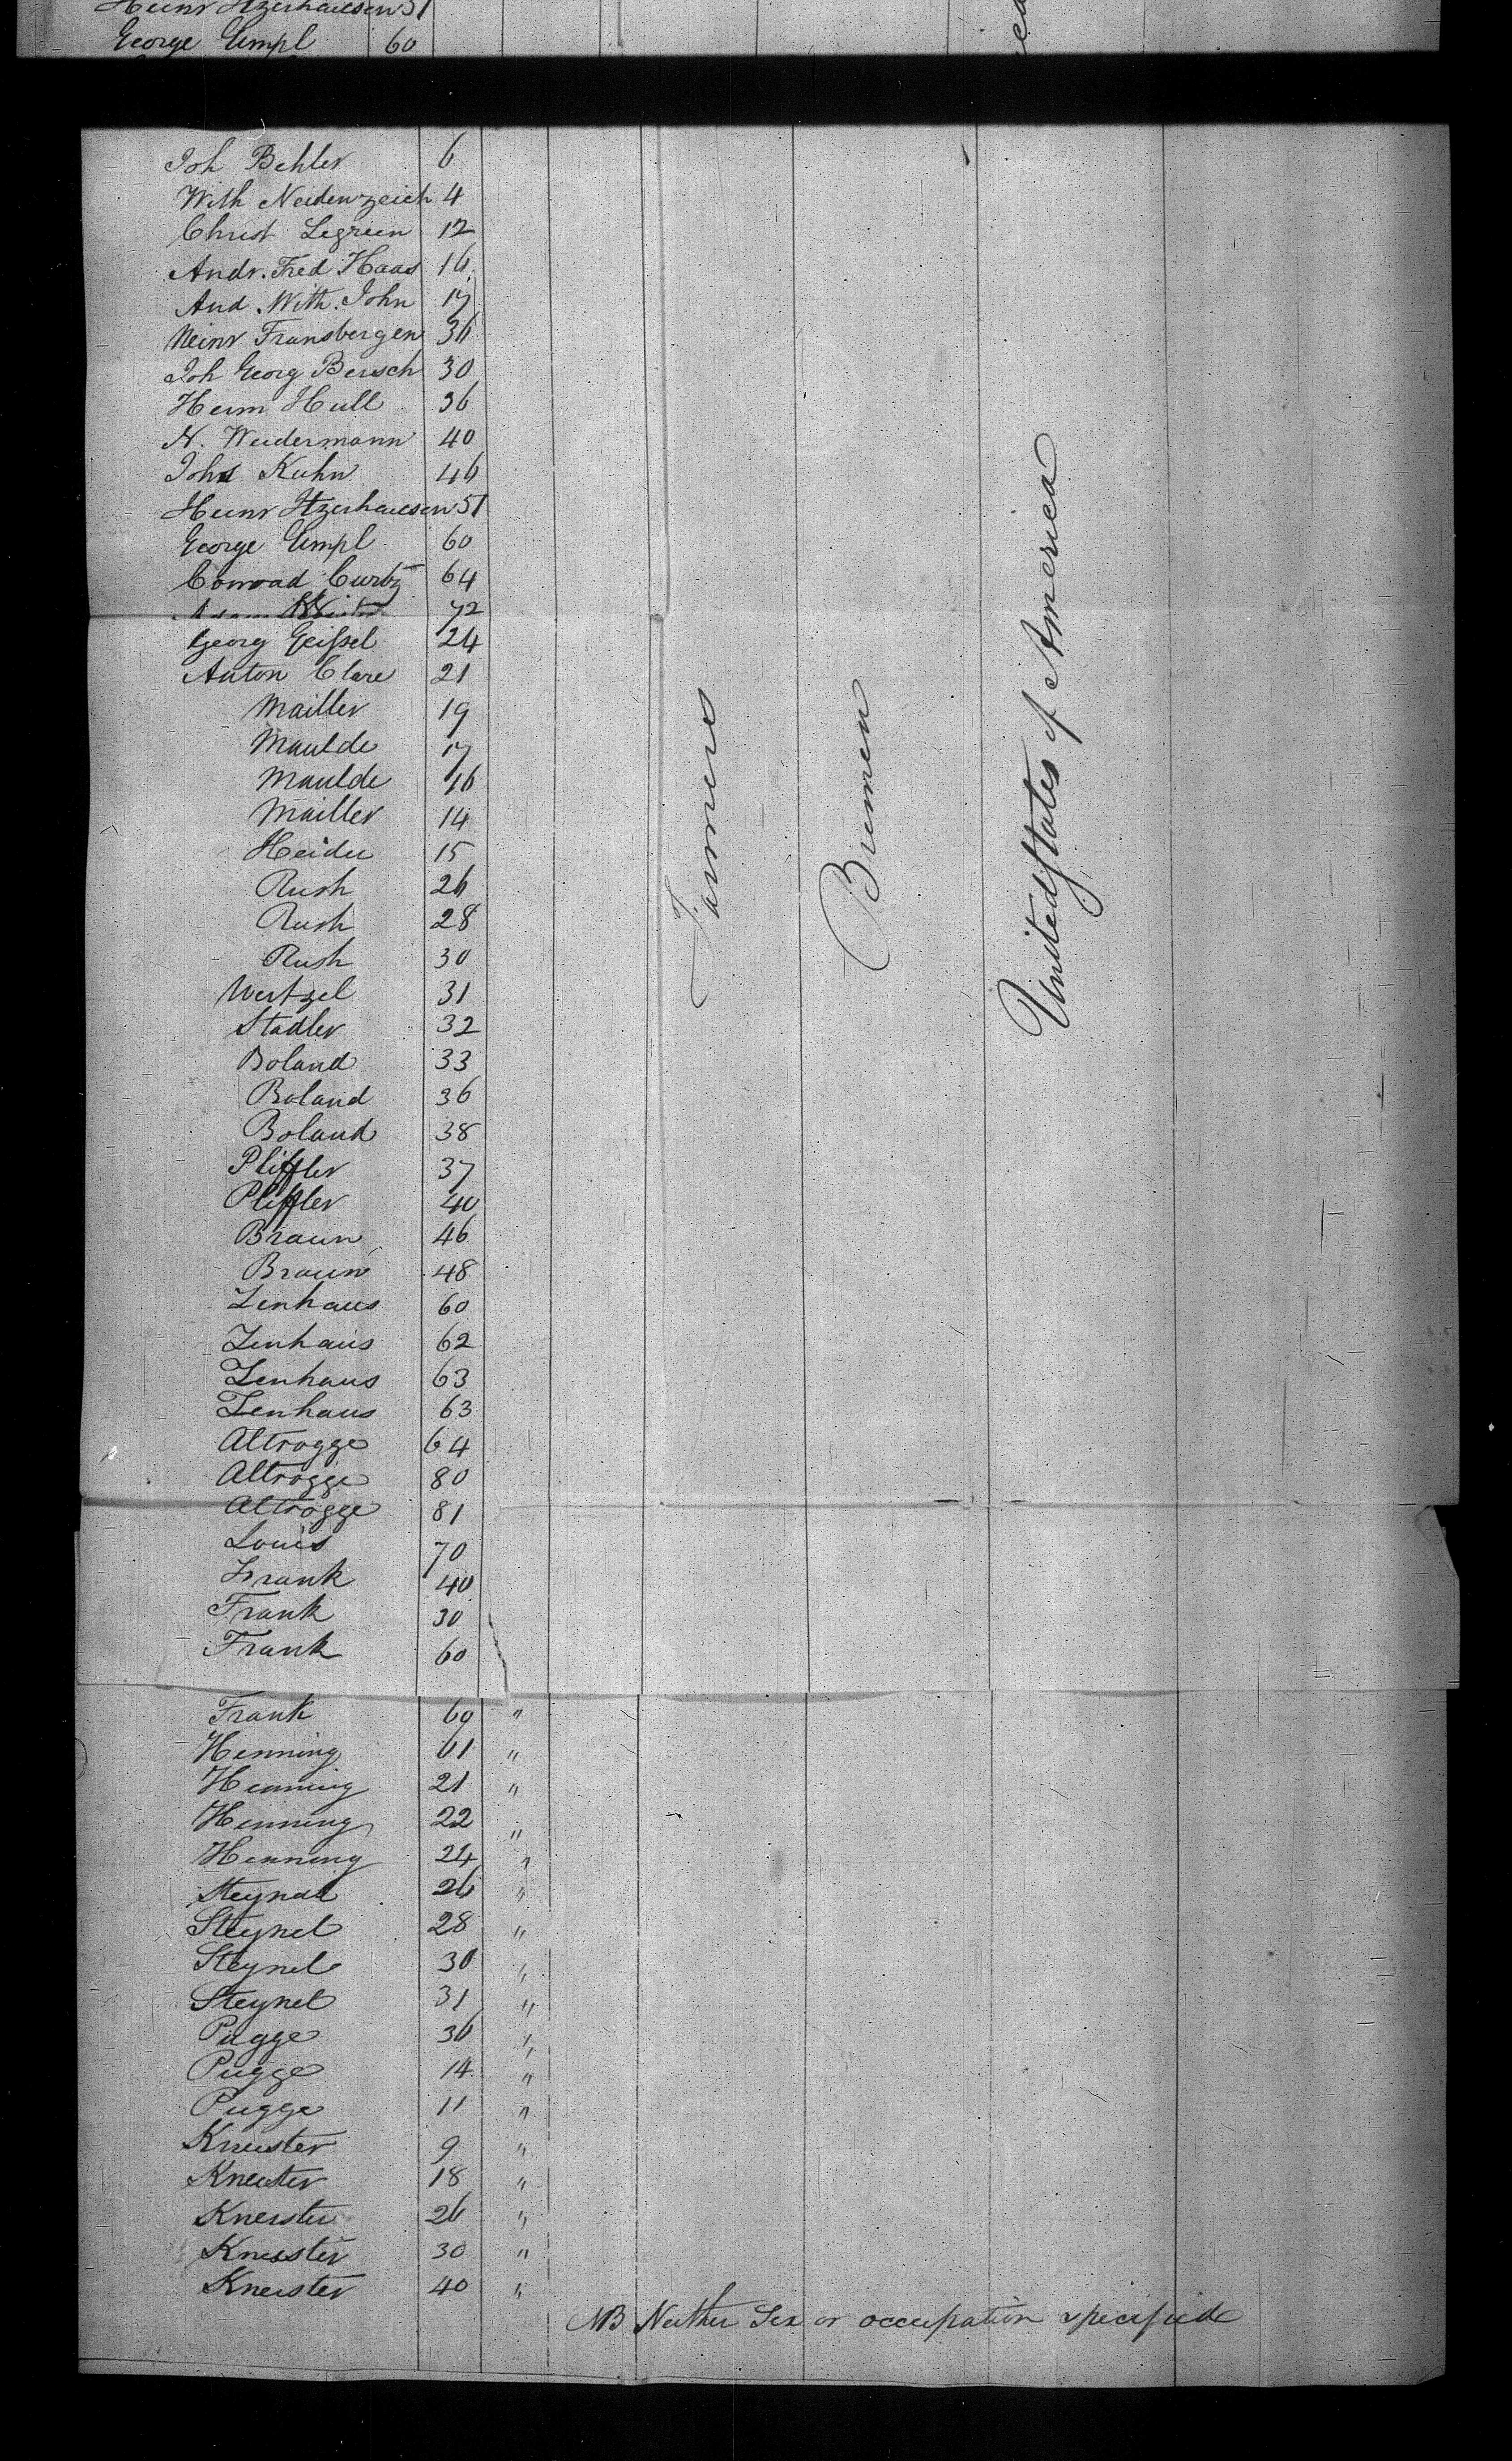 Heinr Itzerhausen 51
George Umpl 60
Joh Behler 6
With Neidenzeich 4
Christ Legrein 12
Andr. Fred Haas 16
And. With. John 17
Heinr Fransbergen 36
Joh Georg Bersch 30
Herm Hull 36
N. Weidermann 40
Johs Kuhn 46
Heinr Itzerhausen 51
George Umpl 60
Conrad Curtz 64
Adam 72
Georg Geissel 24
Anton Clare 21
Mailler 19
Maulde 17
Maulde 16
Mailler 14
Heider 15
Rush 26
Rush 28
Rush 30
Wertzel 31
Stadler 32
Boland 33
Boland 36
Boland 38
Pliffler 37
Pliffler 40
Braun 46
Braun 48
Zenhaus 60
Zenhaus 62
Zenhaus 63
Zenhaus 63
Altrogge 64
Altrogge 80
Altrogge 81
Louis 70
Frank 40
Frank 30
Frank 60
Frank 69 "
Henning 61 "
Henning 21 "
Henning 22 "
Henning 24 "
Steynel 26 "
Steynel 28 "
Steynel 30 "
Steynel 31 "
Pugge 36 "
Pugge 14 "
Pugge 11 "
Kneister 9 "
Kneister 18 "
Kneister 26 "
Kneister 30 "
Kneister 40 "
Farmers
Bremen
United States of America
NB Neither Sex or occupation specified